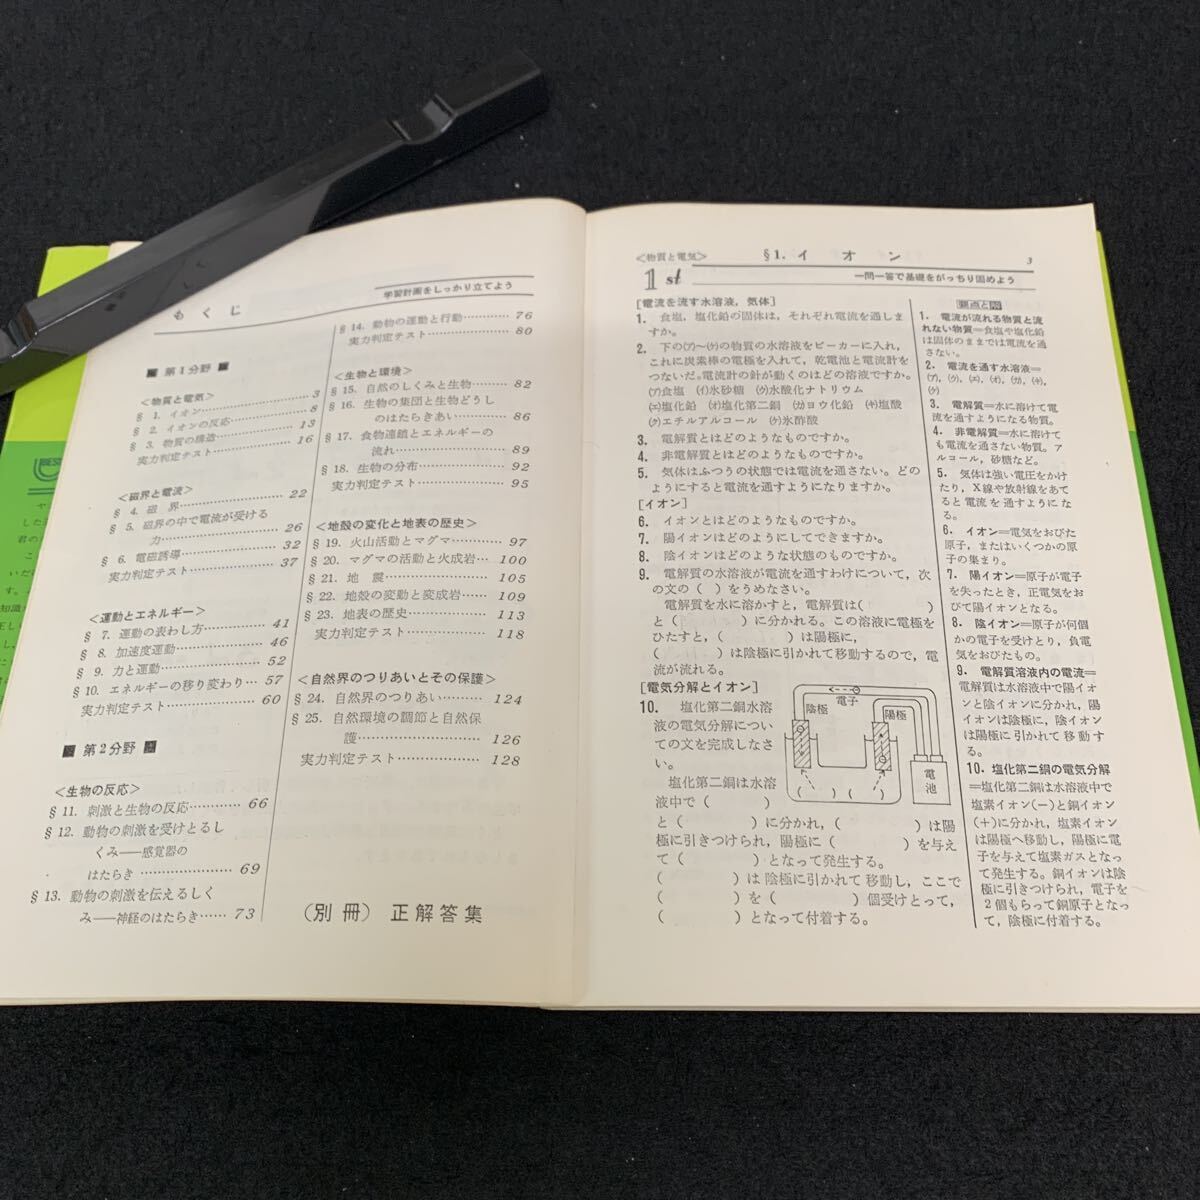 もくじ
学習計画をしっかり立てよう
第1分野
<物質と電気>
§ 1. イオン…………3
§ 2. イオンの反応…………8
§ 3. 物質の構造…………13
実力判定テスト…………16
<磁界と電流>
§ 4. 磁 界…………22
§ 5. 磁界の中で電流が受ける
力…………26
§ 6. 電磁誘導…………32
実力判定テスト…………37
<運動とエネルギー>
§ 7. 運動の表わし方…………41
§ 8. 加速度運動…………46
§ 9. 力と運動…………52
§ 10. エネルギーの移り変わり…57
実力判定テスト…………60
第2分野
<生物の反応>
§ 11. 刺激と生物の反応…………66
§ 12. 動物の刺激を受けとるし
くみ――感覚器の
はたらき…………69
§ 13. 動物の刺激を伝えるしく
み――神経のはたらき……73
§ 14. 動物の運動と行動…………76
実力判定テスト…………80
<生物と環境>
§ 15. 自然のしくみと生物………82
§ 16. 生物の集団と生物どうし
のはたらきあい………86
§ 17. 食物連鎖とエネルギーの
流れ…………89
§ 18. 生物の分布…………92
実力判定テスト…………95
<地殻の変化と地表の歴史>
§ 19. 火山活動とマグマ…………97
§ 20. マグマの活動と火成岩…100
§ 21. 地 震…………105
§ 22. 地殻の変動と変成岩……109
§ 23. 地表の歴史…………113
実力判定テスト…………118
<自然界のつりあいとその保護>
§ 24. 自然界のつりあい………124
§ 25. 自然環境の調節と自然保
護…………126
実力判定テスト…………128
(別冊) 正解答集
<物質と電気>
§1. イ オ ン
3
1st
一問一答で基礎をがっちり固めよう
[電流を流す水溶液, 気体]
1. 食塩, 塩化鉛の固体は, それぞれ電流を通しま
すか。
2. 下の(ア)~(ケ)の物質の水溶液をビーカーに入れ,
これに炭素棒の電極を入れて, 乾電池と電流計を
つないだ。電流計の針が動くのはどの溶液ですか。
(ア)食塩 (イ)氷砂糖 (ウ)水酸化ナトリウム
(エ)塩化鉛 (オ)塩化第二銅 (カ)ヨウ化鉛 (キ)塩酸
(ク)エチルアルコール (ケ)氷酢酸
3. 電解質とはどのようなものですか。
4. 非電解質とはどのようなものですか。
5. 気体はふつうの状態では電流を通さない。どの
ようにすると電流を通すようになりますか。
[イオン]
6. イオンとはどのようなものですか。
7. 陽イオンはどのようにしてできますか。
8. 陰イオンはどのような状態のものですか。
9. 電解質の水溶液が電流を通すわけについて, 次
の文の( )をうめなさい。
電解質を水に溶かすと, 電解質は( )
と( )に分かれる。この溶液に電極を
ひたすと, ( )は陽極に,
( )は陰極に引かれて移動するので, 電
流が流れる。
[電気分解とイオン]
10. 塩化第二銅水溶
液の電気分解につい
ての文を完成しなさ
い。
塩化第二銅は水溶
液中で( )
と( )に分かれ, ( )は陽
極に引きつけられ, 陽極に( )を与え
て( )となって発生する。
( )は陰極に引かれて移動し, ここで
( )を( )個受けとって,
( )となって付着する。
電子
陰極
陽極
電池
要点と解
1. 電流が流れる物質と流
れない物質=食塩や塩化鉛
は固体のままでは電流を通
さない。
2. 電流を通す水溶液=
(ア), (ウ), (エ), (オ), (カ), (キ),
(ケ)
3. 電解質=水に溶けて電
流を通すようになる物質。
4. 非電解質=水に溶けて
も電流を通さない物質。ア
ルコール, 砂糖など。
5. 気体は強い電圧をかけ
たり, X線や放射線をあて
ると電流を通すようにな
る。
6. イオン=電気をおびた
原子, またはいくつかの原
子の集まり。
7. 陽イオン=原子が電子
を失ったとき, 正電気をお
びて陽イオンとなる。
8. 陰イオン=原子が何個
かの電子を受けとり, 負電
気をおびたもの。
9. 電解質溶液内の電流=
電解質は水溶液中で陽イオ
ンと陰イオンに分かれ, 陽
イオンは陰極に, 陰イオン
は陽極に引かれて移動す
る。
10. 塩化第二銅の電気分解
=塩化第二銅は水溶液中で
塩素イオン(-)と銅イオン
(+)に分かれ, 塩素イオン
は陽極へ移動し, 陽極に電
子を与えて塩素ガスとなっ
て発生する。銅イオンは陰
極に引きつけられ, 電子を
2個もらって銅原子となっ
て, 陰極に付着する。